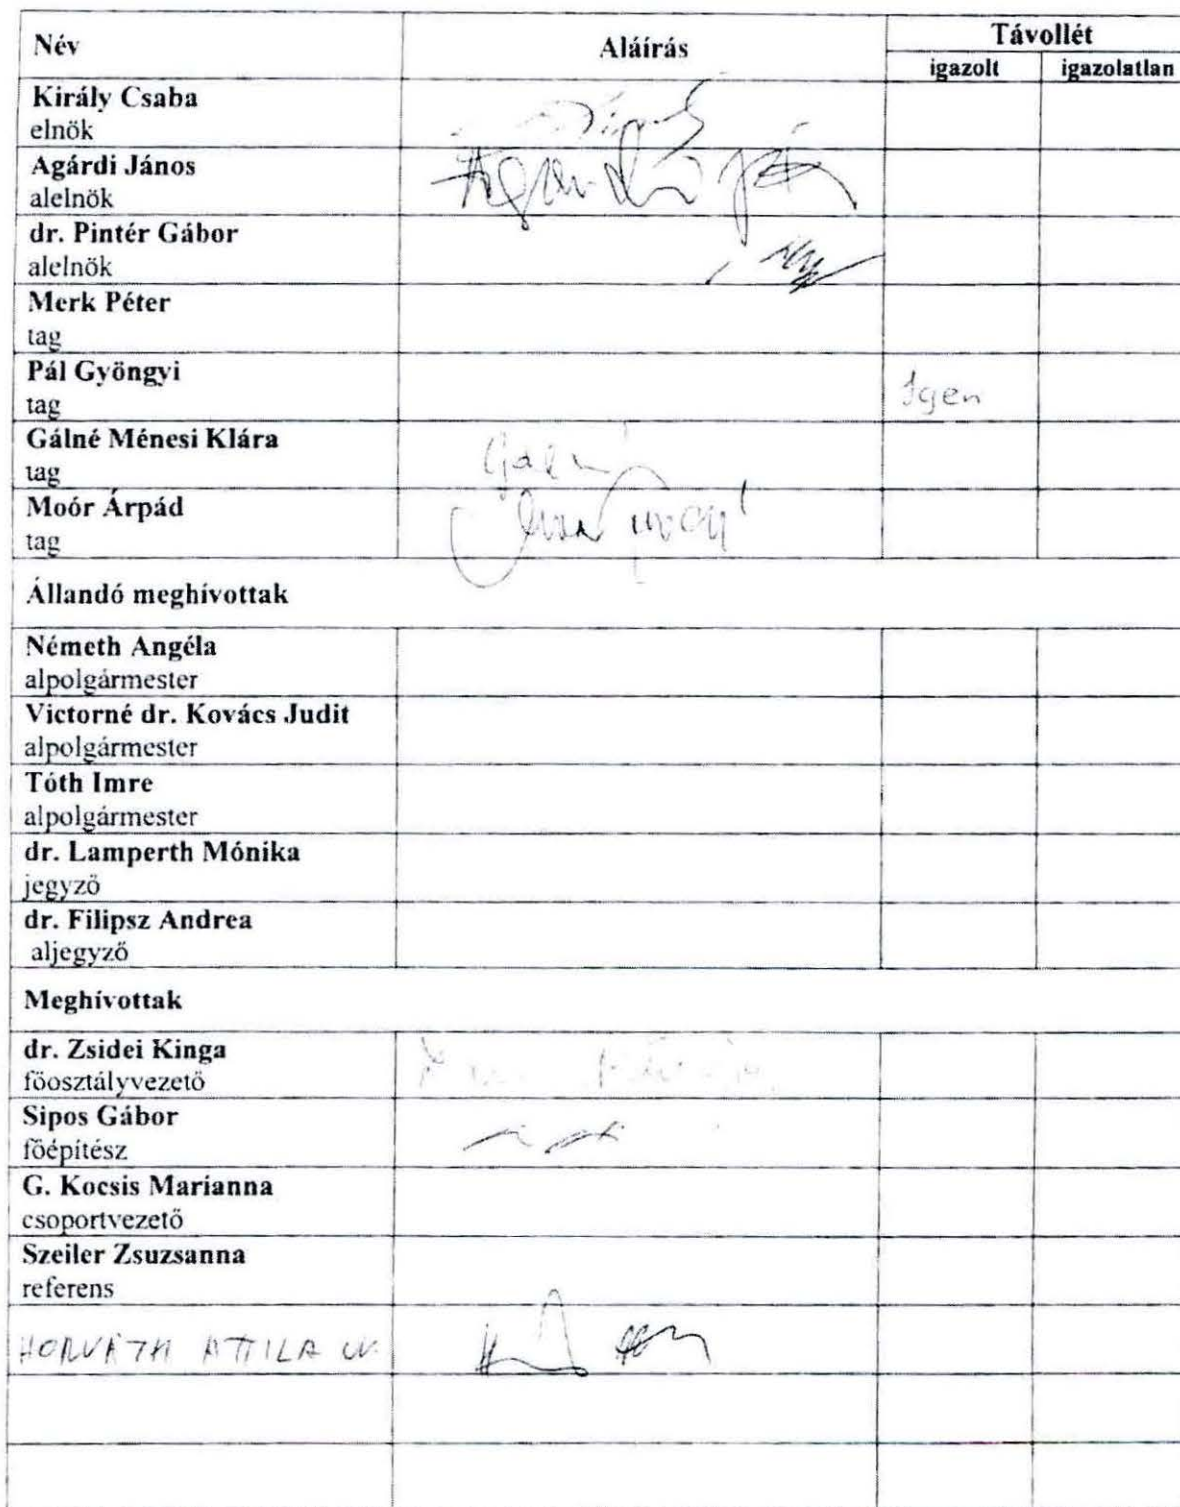 Név Aláírás Távollét
igazolt igazolatlan
Király Csaba
elnök
Agárdi János
alelnök
dr. Pintér Gábor
alelnök
Merk Péter
tag
Pál Gyöngyi
tag
Igen
Gálné Ménesi Klára
tag
Moór Árpád
tag
Állandó meghívottak
Németh Angéla
alpolgármester
Victorné dr. Kovács Judit
alpolgármester
Tóth Imre
alpolgármester
dr. Lamperth Mónika
jegyző
dr. Filipsz Andrea
aljegyző
Meghívottak
dr. Zsidei Kinga
főosztályvezető
Sipos Gábor
főépítész
G. Kocsis Marianna
csoportvezető
Szeiler Zsuzsanna
referens
HORVÁTH ATTILA